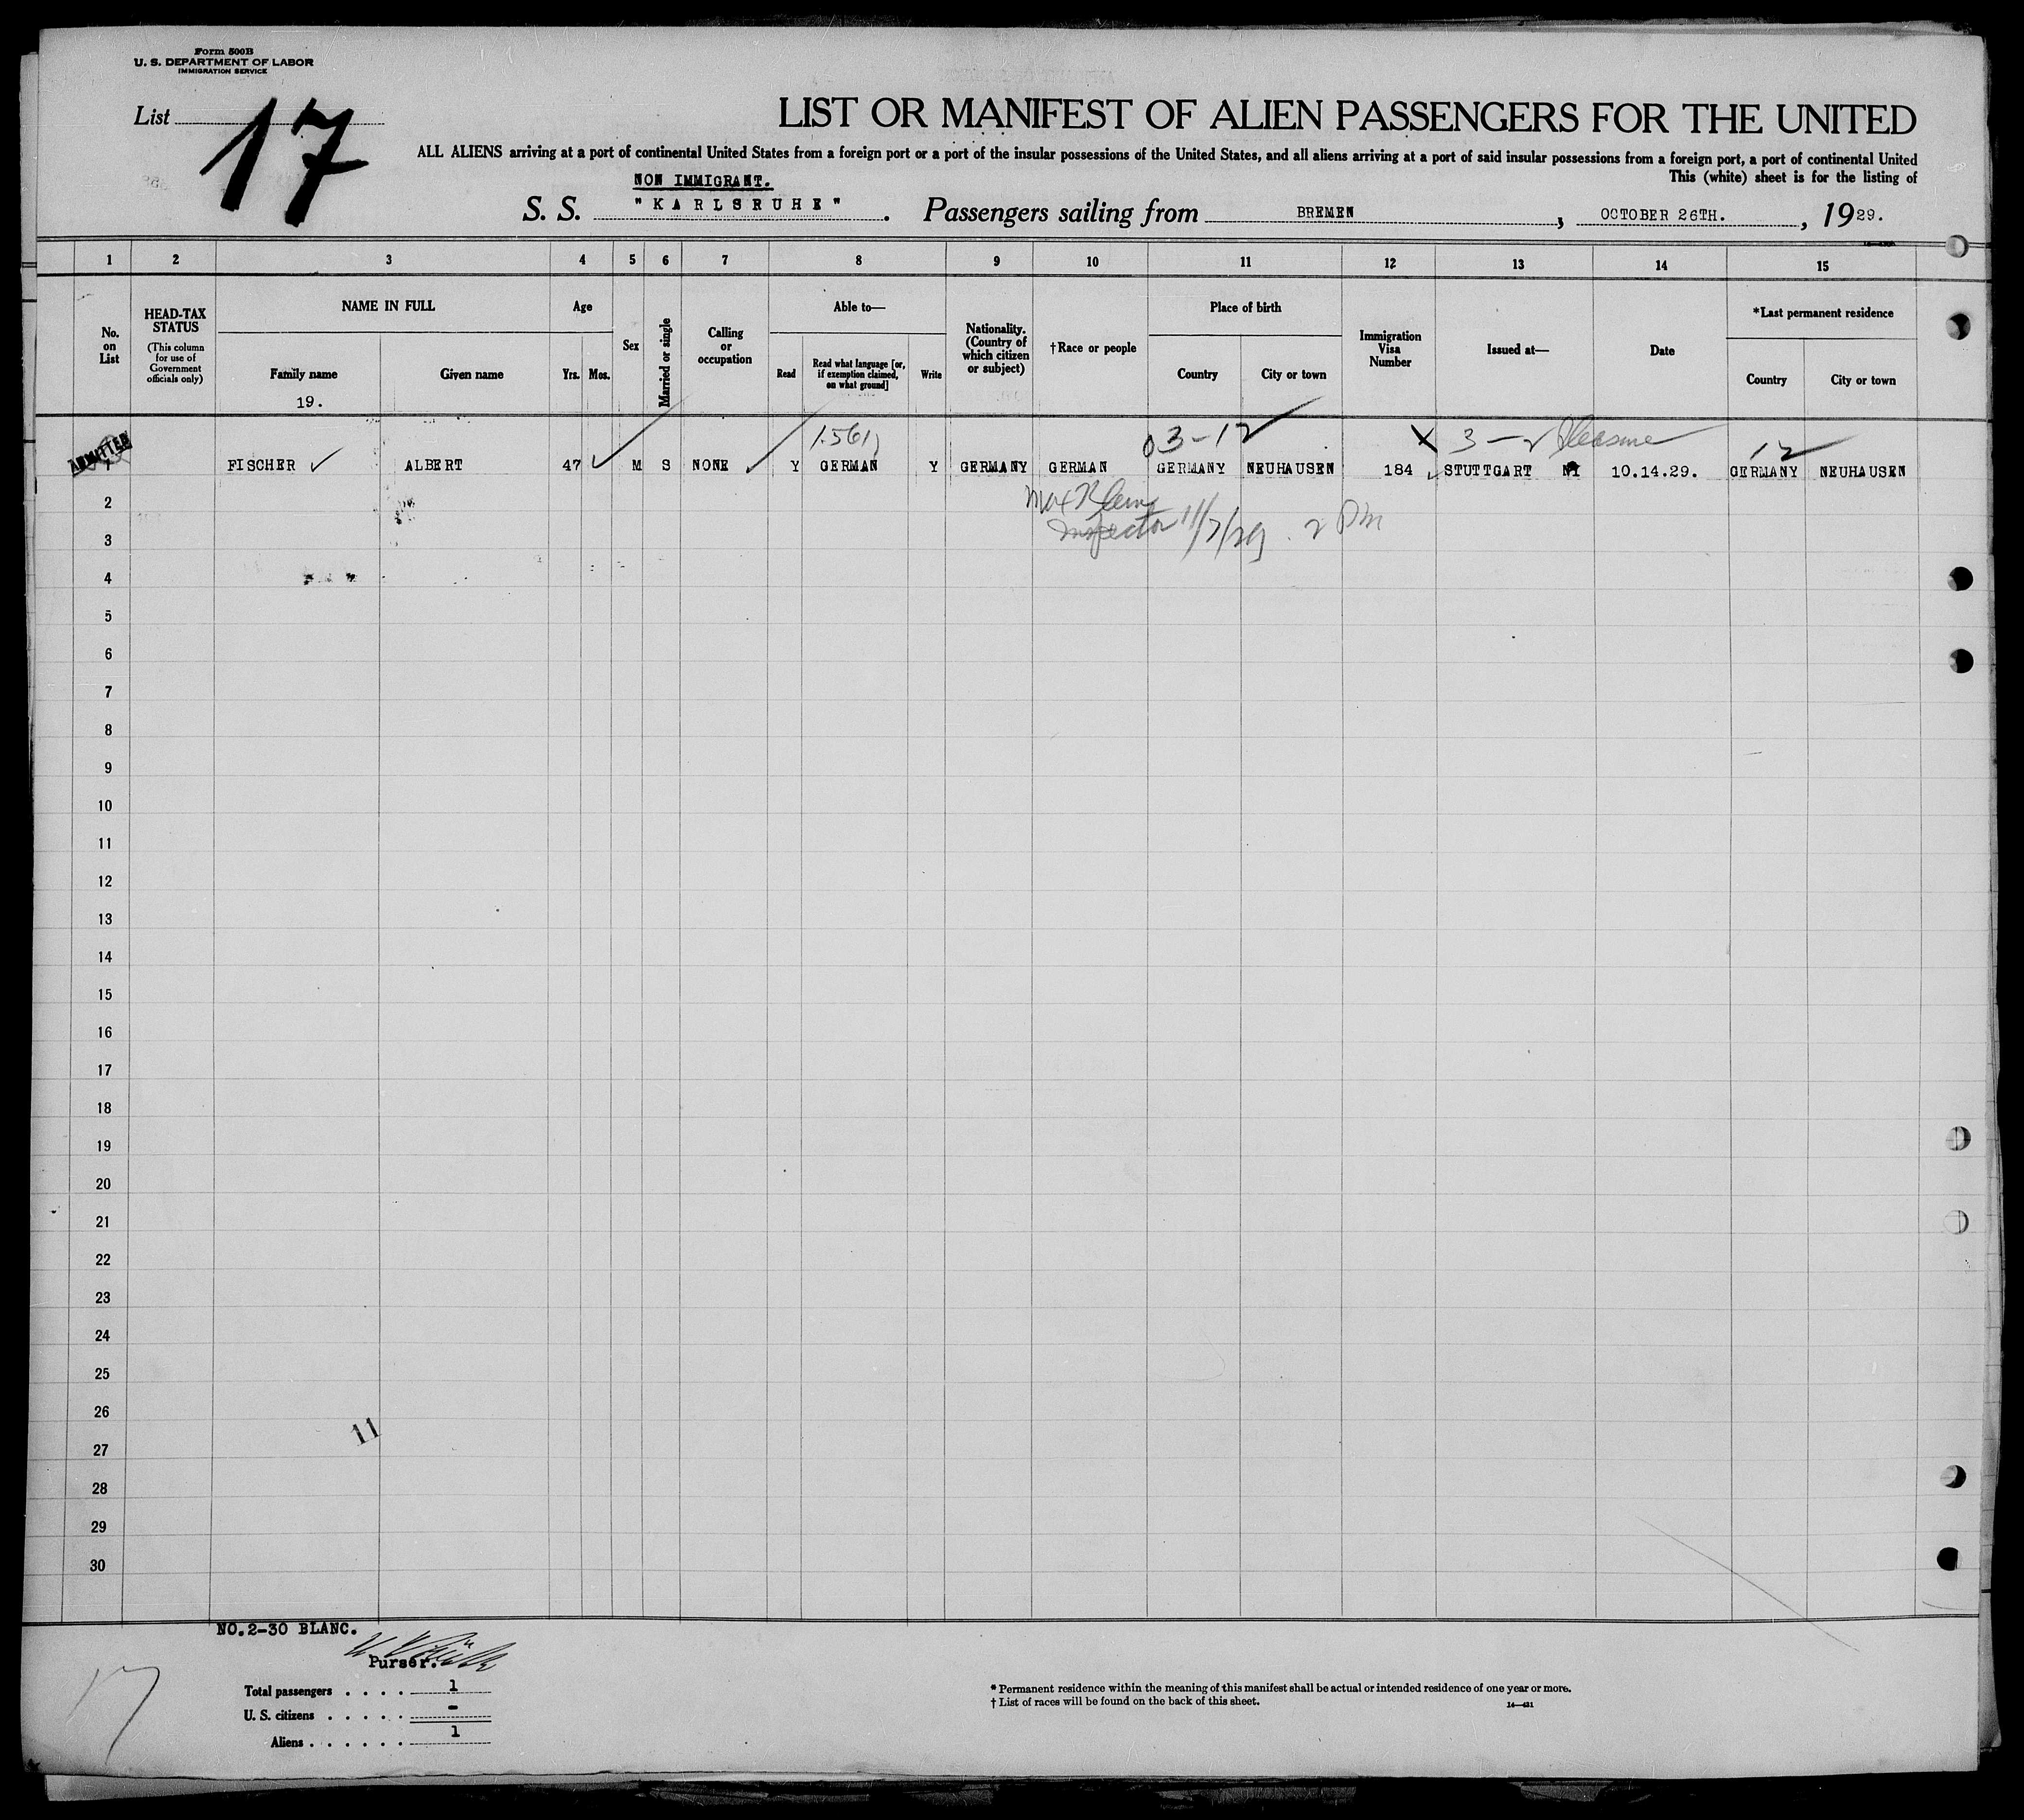 Form 500B
U. S. DEPARTMENT OF LABOR
IMMIGRATION SERVICE
List 17
LIST OR MANIFEST OF ALIEN PASSENGERS FOR THE UNITED
ALL ALIENS arriving at a port of continental United States from a foreign port or a port of the insular possessions of the United States, and all aliens arriving at a port of said insular possessions from a foreign port, a port of continental United
This (white) sheet is for the listing of
NON IMMIGRANT.
S. S. "KARLSRUHE". Passengers sailing from BREMEN, OCTOBER 26TH., 1929.
1 2 3 4 5 6 7 8 9 10 11 12 13 14 15
No. on List
HEAD-TAX STATUS
(This column for use of Government officials only)
NAME IN FULL
Family name
19.
Given name
Age
Yrs. Mos.
Sex
Married or single
Calling or occupation
Able to—
Read
Read what language [or, if exemption claimed, on what ground]
Write
Nationality. (Country of which citizen or subject)
†Race or people
Place of birth
Country
City or town
Immigration Visa Number
Issued at—
Date
*Last permanent residence
Country
City or town
1561 03-12 X 3-2 Pleasure 12
ADMITTED
1 FISCHER ALBERT 47 M S NONE Y GERMAN Y GERMANY GERMAN GERMANY NEUHAUSEN 184 STUTTGART 10.14.29. GERMANY NEUHAUSEN
Inspector 11/7/29. 2 PM
2
3
4
5
6
7
8
9
10
11
12
13
14
15
16
17
18
19
20
21
22
23
24
25
26
11
27
28
29
30
NO.2-30 BLANC.
Purser.
17
Total passengers . . . . 1
U. S. citizens . . . . . -
Aliens . . . . . . 1
* Permanent residence within the meaning of this manifest shall be actual or intended residence of one year or more.
† List of races will be found on the back of this sheet.